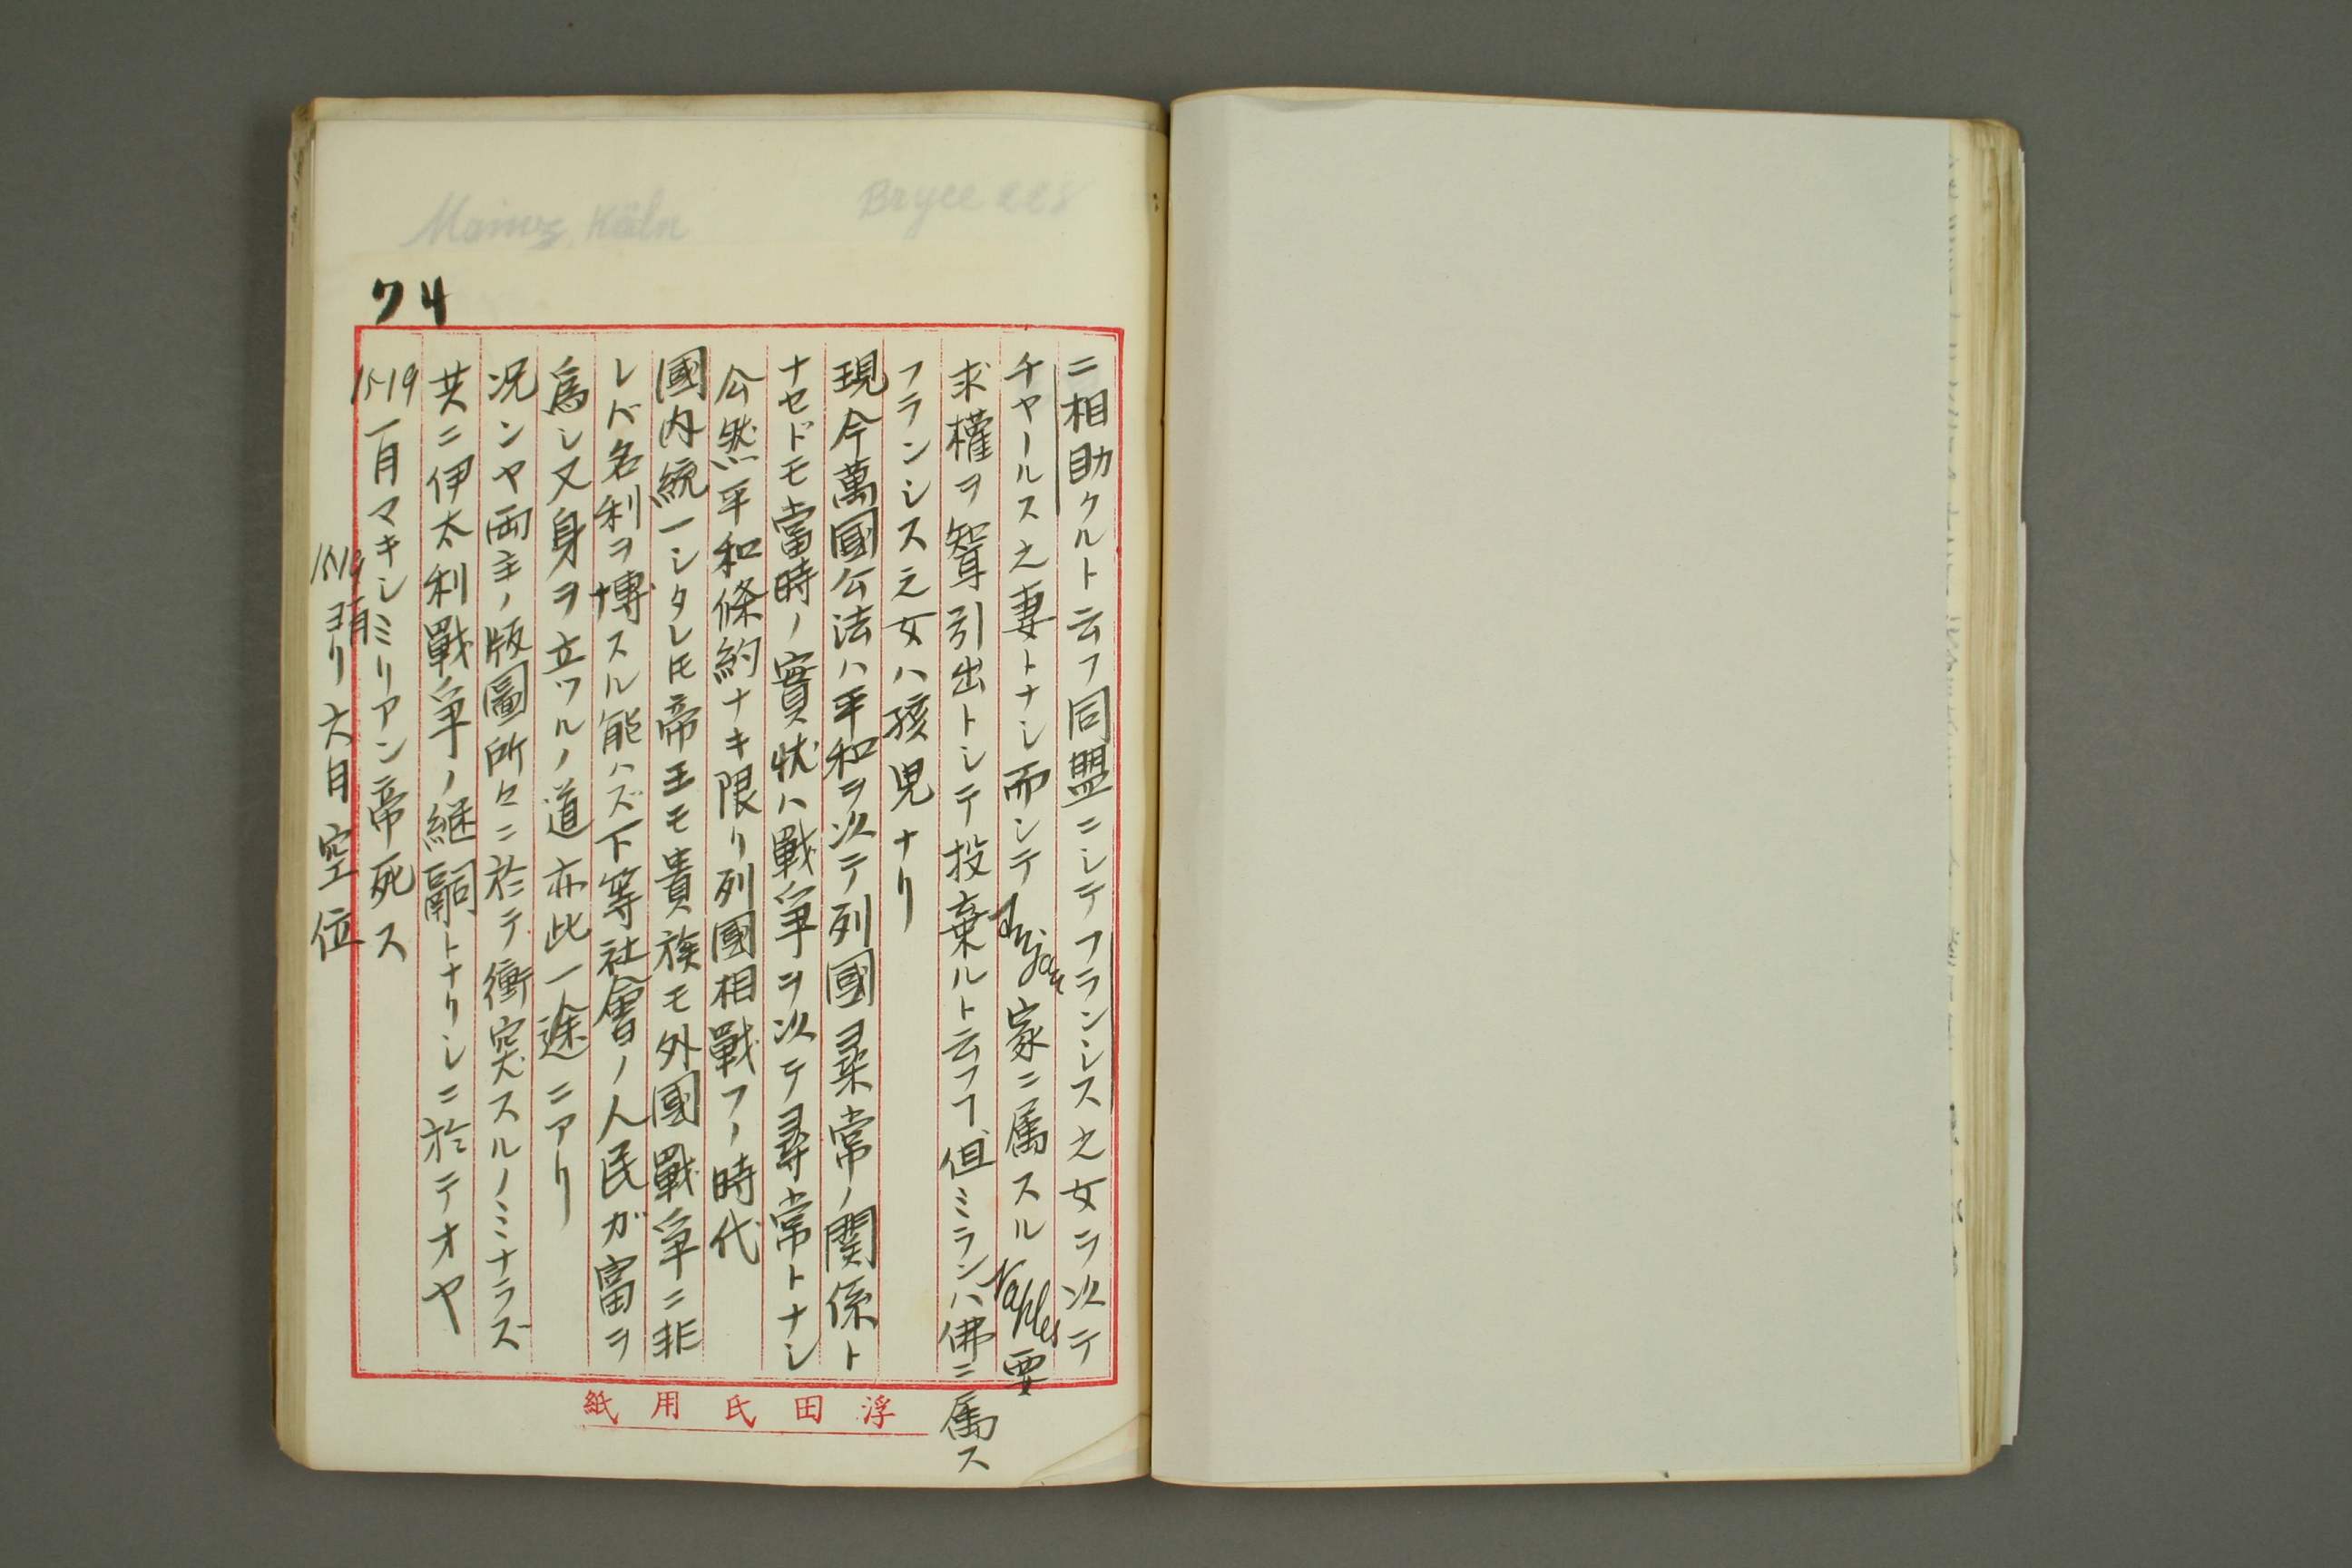 Bryce 228
Mainz, Köln
74
ニ相助クルト云フ同盟ニシテフランシス之女ヲ以テ
チヤールス之妻トナシ而シテAnjou家ニ属スルNaples要
求權ヲ聟引出トシテ投棄ルト云フヿ但ミランハ佛ニ属ス
フランシス之女ハ孩児ナリ
現今萬國公法ハ平和ヲ以テ列國尋常ノ関係ト
ナセドモ當時ノ實状ハ戰爭ヲ以テ尋常トナシ
公然平和條約ナキ限リ列國相戰フノ時代
國内統一シタレ𪜈帝王モ貴族モ外國戰爭ニ非
レバ名利ヲ博スル能ハズ下等社會ノ人民ガ富ヲ
爲シ又身ヲ立ツルノ道亦此一途ニアリ
况ンヤ両主ノ版圖所々ニ於テ衝突スルノミナラズ
共ニ伊太利戰爭ノ継嗣トナリシニ於テオヤ
1519一月マキシミリアン帝死ス
1519一月ヨリ六月空位
浮田氏用紙